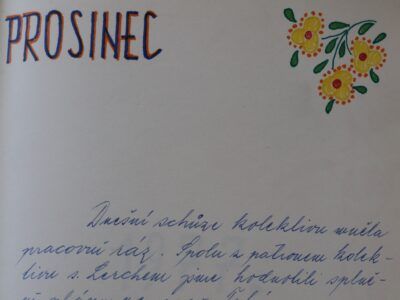 PROSINEC
Dnešní schůze kolektivu měla
pracovní ráz. Spolu s patronem kolek-
tivu s. Lerchem jsme hodnotili splně-
ní